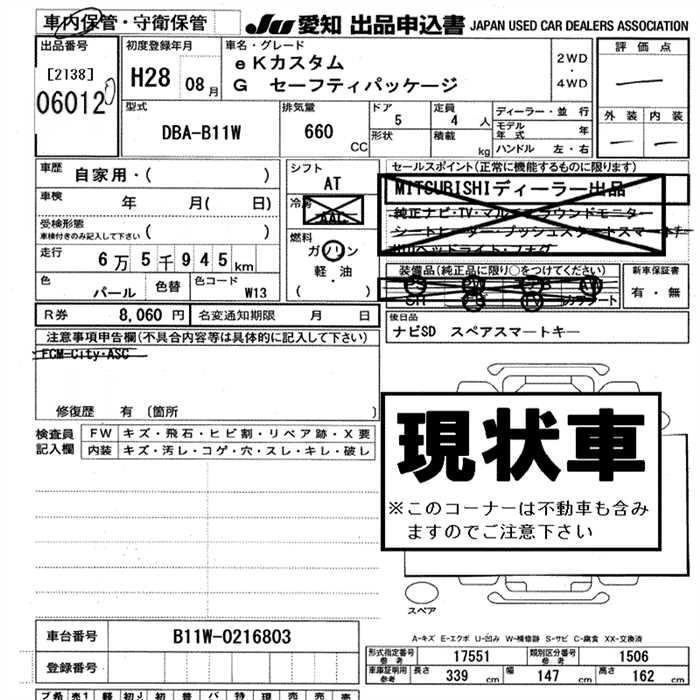 車内保管・守衛保管
JU 愛知 出品申込書 JAPAN USED CAR DEALERS ASSOCIATION
出品番号
[2138]
06012
初度登録年月
H28 08月
車名・グレード
eKカスタム
G セーフティパッケージ
2WD
・
4WD
評価点
外装 内装
型式
DBA-B11W
排気量
660 CC
ドア 5
形状
定員 4 人
積載 kg
ディーラー・並行
モデル年式 年
ハンドル 左・右
車歴
自家用・( )
車検 年 月( 日)
受検形態
車検付きのみ記入して下さい ( )
走行 6万5千945km
色 パール
色替
色コード W13
シフト
AT
冷房
AAC
燃料
ガソリン
軽・油
( )
セールスポイント(正常に機能するものに限ります)
MITSUBISHIディーラー出品
純正ナビ・TV・マルチアラウンドモニター
シートヒーター・プッシュスタートスマートキー
HIDヘッドライト・フォグ
装備品(純正品に限り○をつけてください)
新車保証書
有・無
R券 8,060円
名変通知期限 月 日
後日品
ナビSD スペアスマートキー
注意事項申告欄(不具合内容等は具体的に記入して下さい)
FCM=City・ASC
修復歴 有 〔箇所 〕
検査員記入欄
FW キズ・飛石・ヒビ割・リペア跡・X要
内装 キズ・汚レ・コゲ・穴・スレ・キレ・破レ
現状車
※このコーナーは不動車も含み
ますのでご注意下さい
スペア
A-キズ E-エクボ U-凹み W-補修跡 S-サビ C-腐食 XX-交換済
車台番号 B11W-0216803
登録番号
形式指定番号 参考 17551
類別区分番号 参考 1506
車庫証明用 参考 長さ 339 cm 幅 147 cm 高さ 162 cm